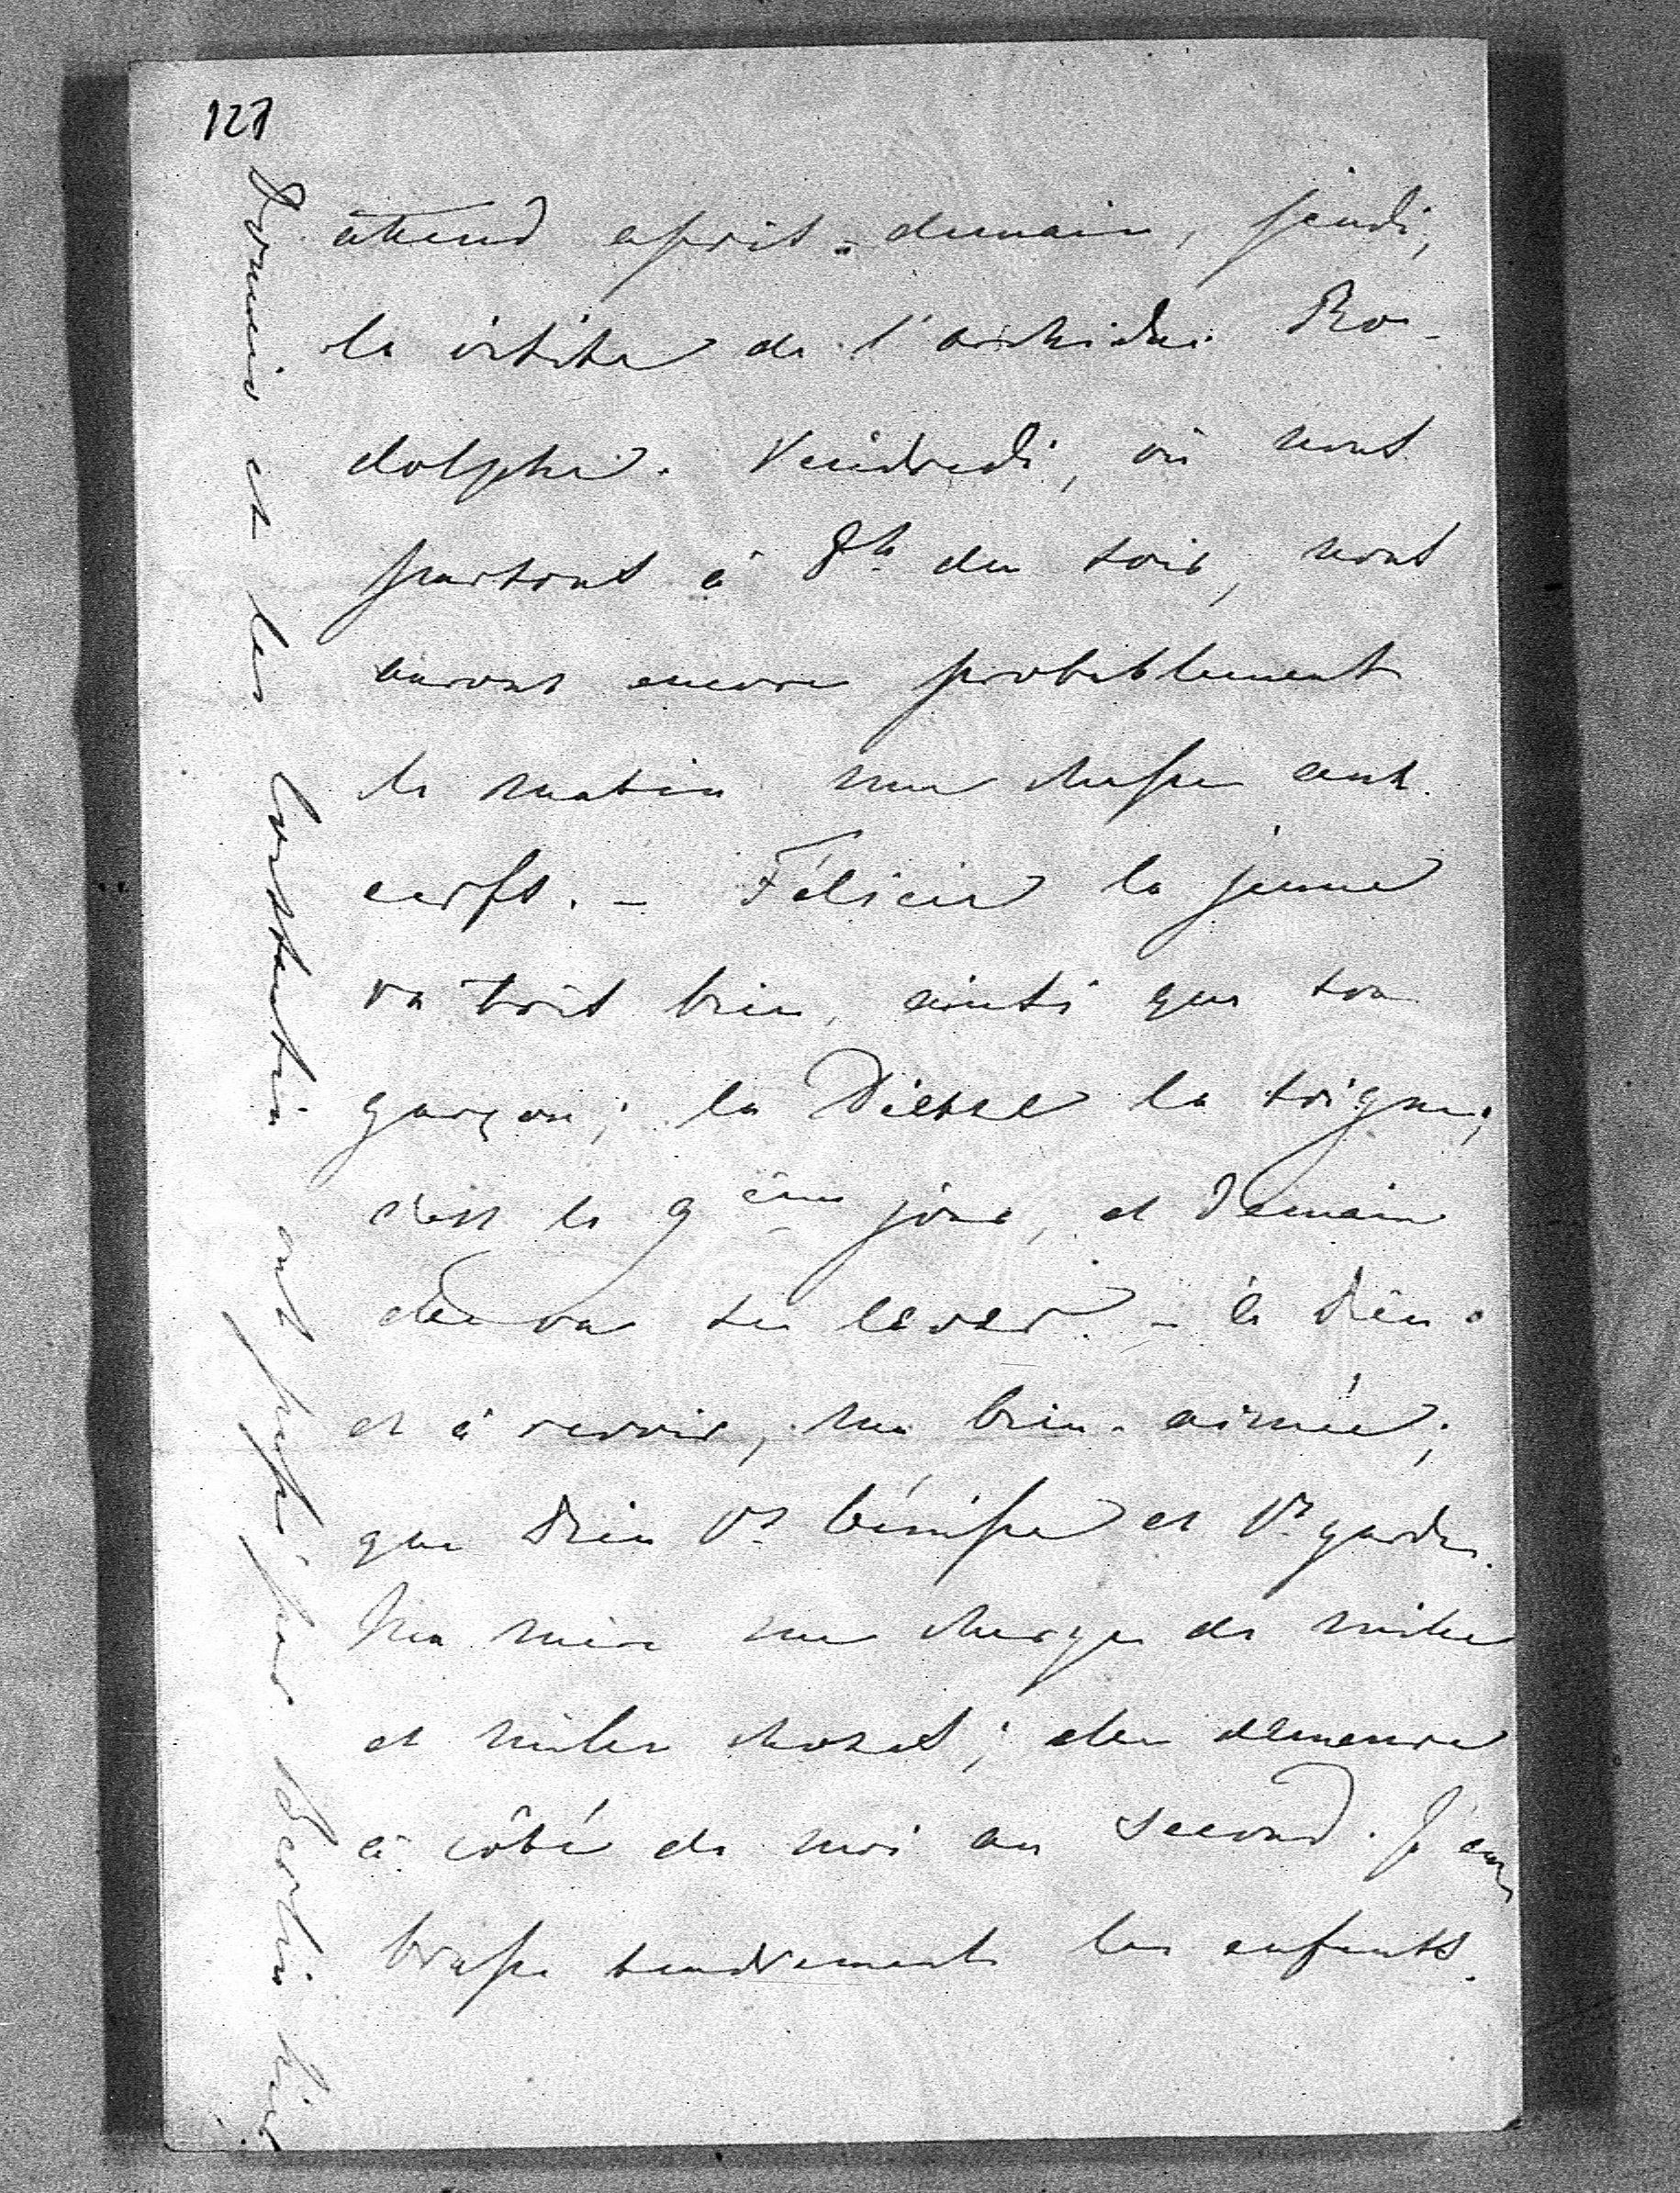 127
attend après-demain, jeudi,
la visite de l'archiduc Ro-
dolphe. Vendredi, où nous
partons à 8h du soir, nous
aurons encore probablement
le matin une chasse aux
cerfs. – Félicie la jeune
va très bien, ainsi que son
garçon; la la soigne;
c'est le 9ème jour, et demain
elle va se lever. – à Dieu
et à revoir, ma bien-aimée;
que Dieu Vs bénisse et Vs garde.
Ma mère me charge de mille
et mille choses; elle demeure
à côté de moi au second. J'em
brasse tendrement les enfants.
et les Constantin ont passé par Berlin hier